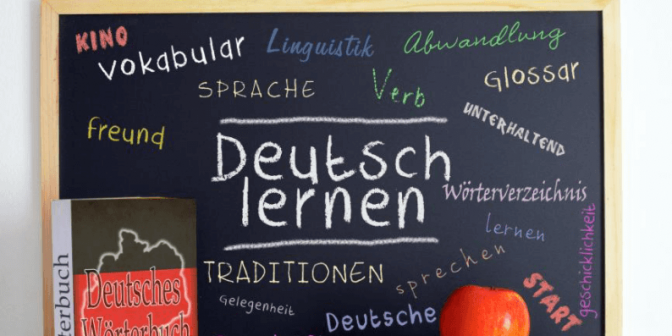 KINO
Vokabular
Linguistik
Abwandlung
SPRACHE
Verb
Glossar
UNTERHALTEND
freund
Deutsch
lernen
Wörterverzeichnis
lernen
geschicklichkeit
sprechen
TRADITIONEN
START
Gelegenheit
Deutsche
Deutsches
Wörterbuch